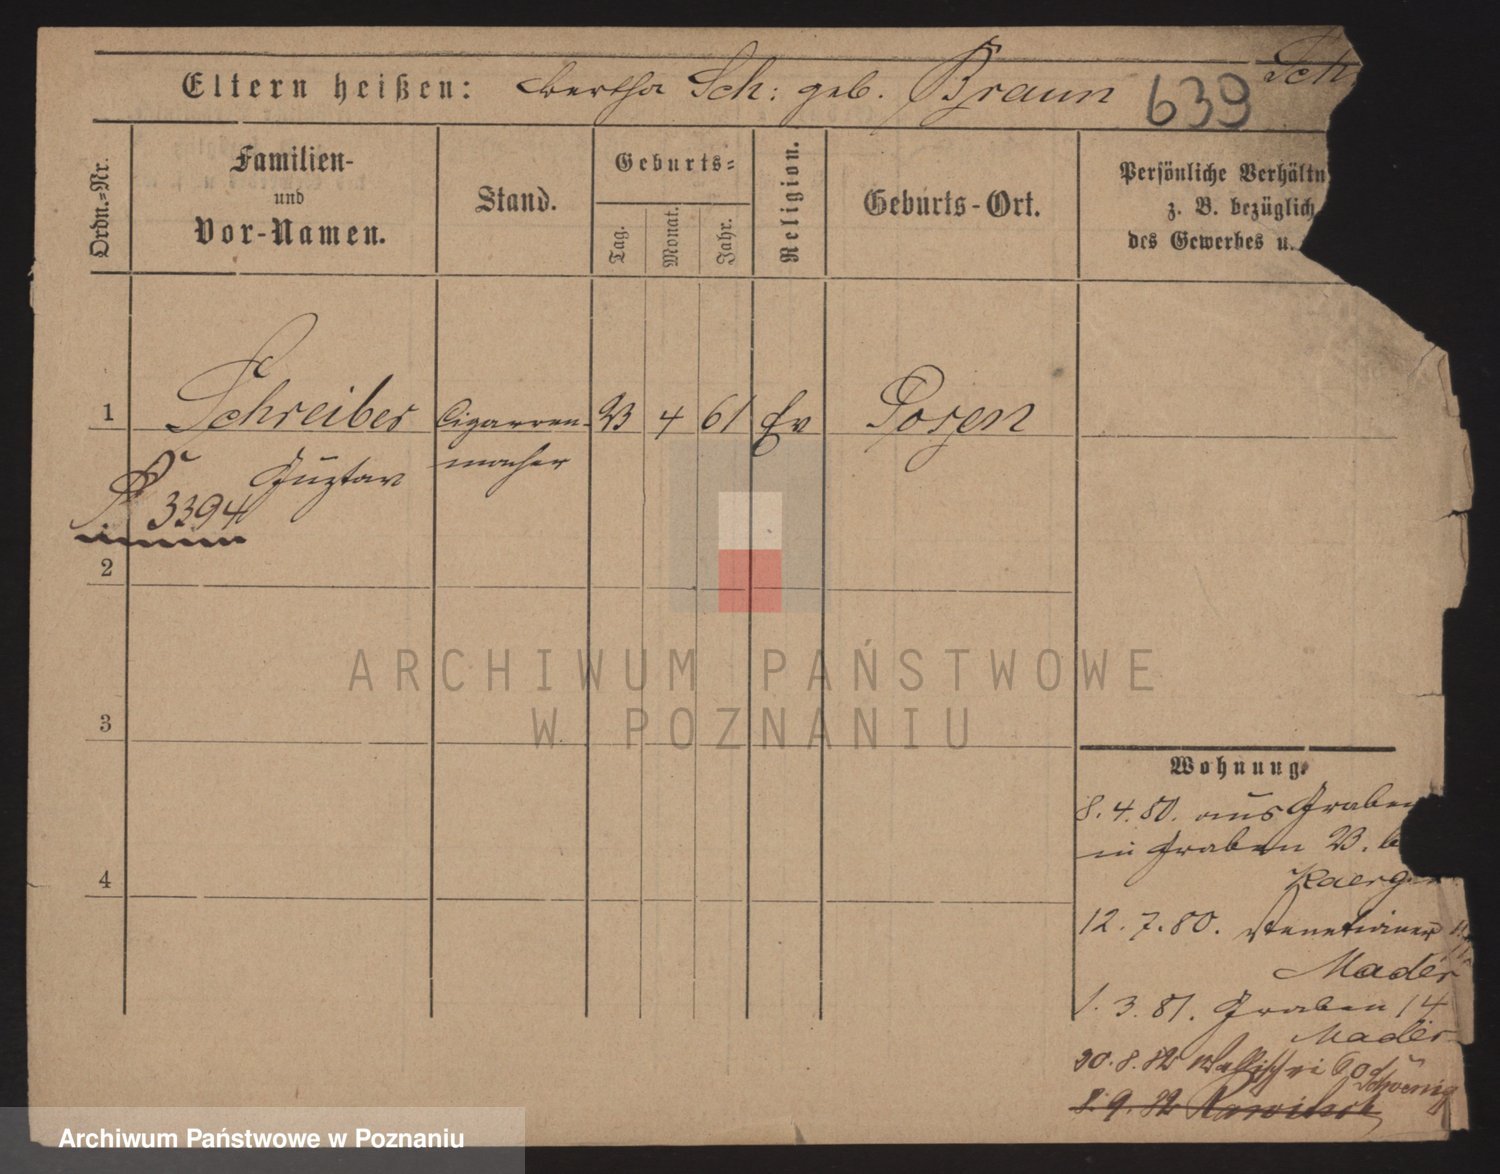 Eltern heißen: Bertha Sch: geb. Braun
639
Sch
Ordn.=Nr.
Familien-
und
Vor-Namen.
Stand.
Geburts=
Tag.
Monat.
Jahr.
Religion.
Geburts-Ort.
Persönliche Verhältn
z. B. bezüglich
des Gewerbes u.
1 Schreiber Cigarren- 23 4 61 Ev Posen
Gustav macher
3394
2
3
4
Wohnung.
8. 4. 80. aus Graben
in Graben 23. b
12. 7. 80. Venetianer
Mader
1. 3. 81. Graben 14
Mader
20. 8. 82 Wallischei 60
8. 9. 82
ARCHIWUM PAŃSTWOWE
W POZNANIU
Archiwum Państwowe w Poznaniu